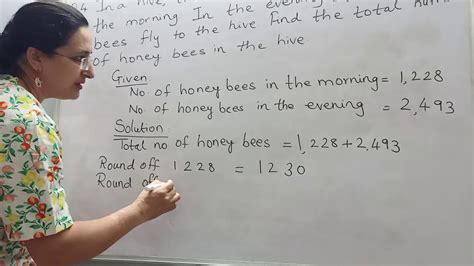 In a hive, t
the morning In the evening
bees fly to the hive find the total
of honey bees in the hive
Given
No. of honey bees in the morning = 1,228
No. of honey bees in the evening = 2,493
Solution
Total no of honey bees = 1,228 + 2,493
Round off 1228 = 1230
Round off